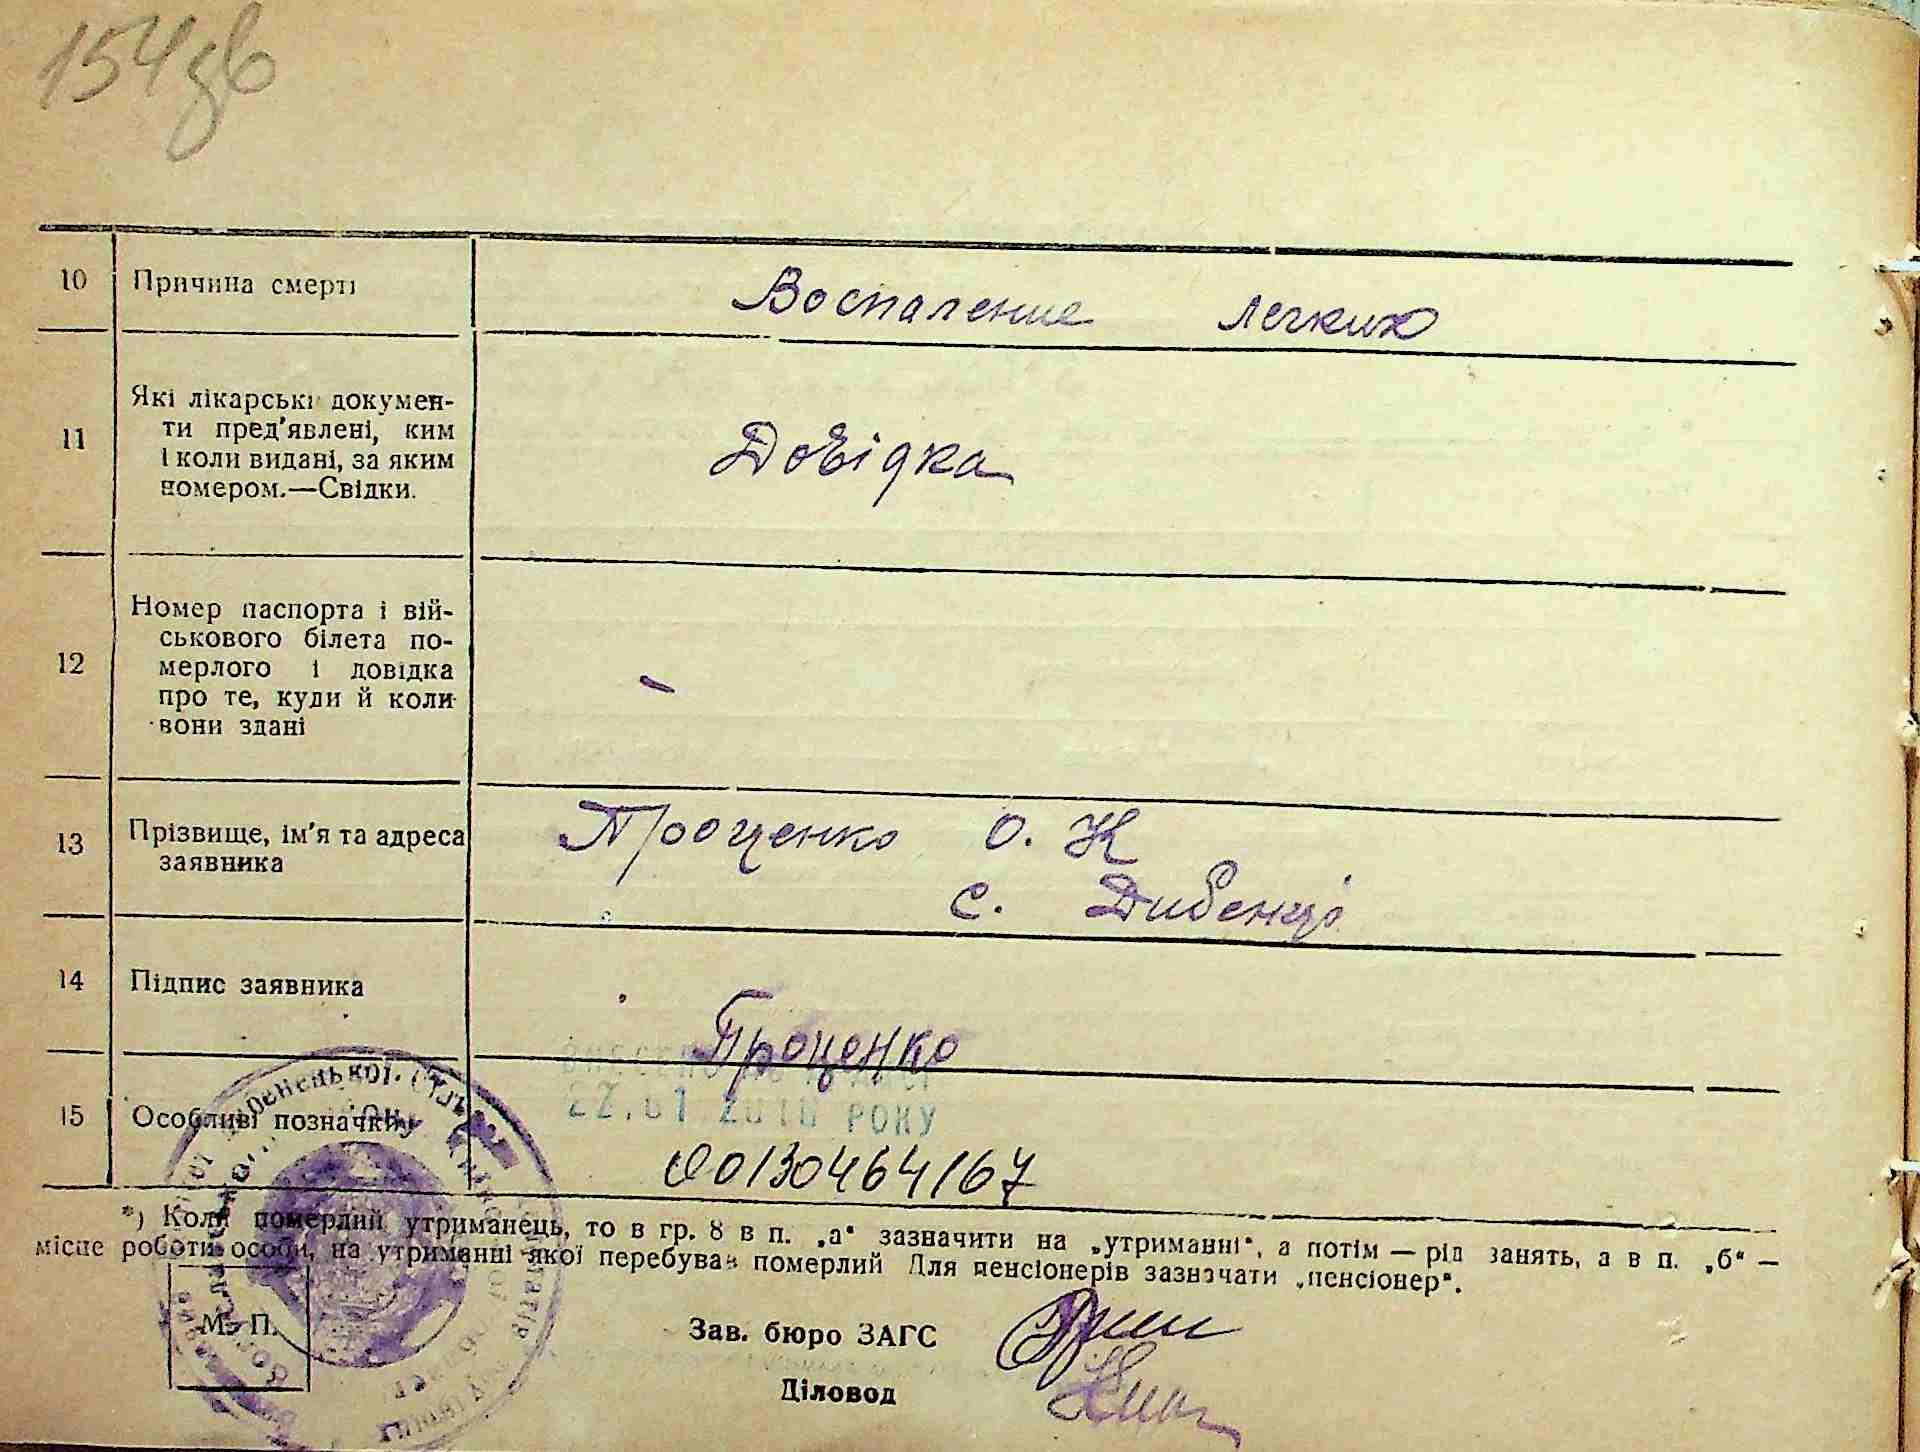 154зв
10 Причина смерті Воспаление легких
Які лікарські докумен-
ти пред'явлені, ким
11 і коли видані, за яким Довідка
номером.—Свідки.
Номер паспорта і вій-
ськового білета по-
12 мерлого і довідка -
про те, куди й коли
вони здані
13 Прізвище, ім'я та адреса Проценко О. К
заявника с. Дибенці
14 Підпис заявника Проценко
22.01.2010 РОКУ
15 Особливі позначки
00130464167
*) Коли померлий утриманець, то в гр. 8 в п. „а“ зазначити на „утриманні“, а потім — рід занять, а в п. „б“ —
місце роботи особи, на утриманні якої перебував померлий Для пенсіонерів зазначати „пенсіонер“.
М. П.
Зав. бюро ЗАГС
Діловод